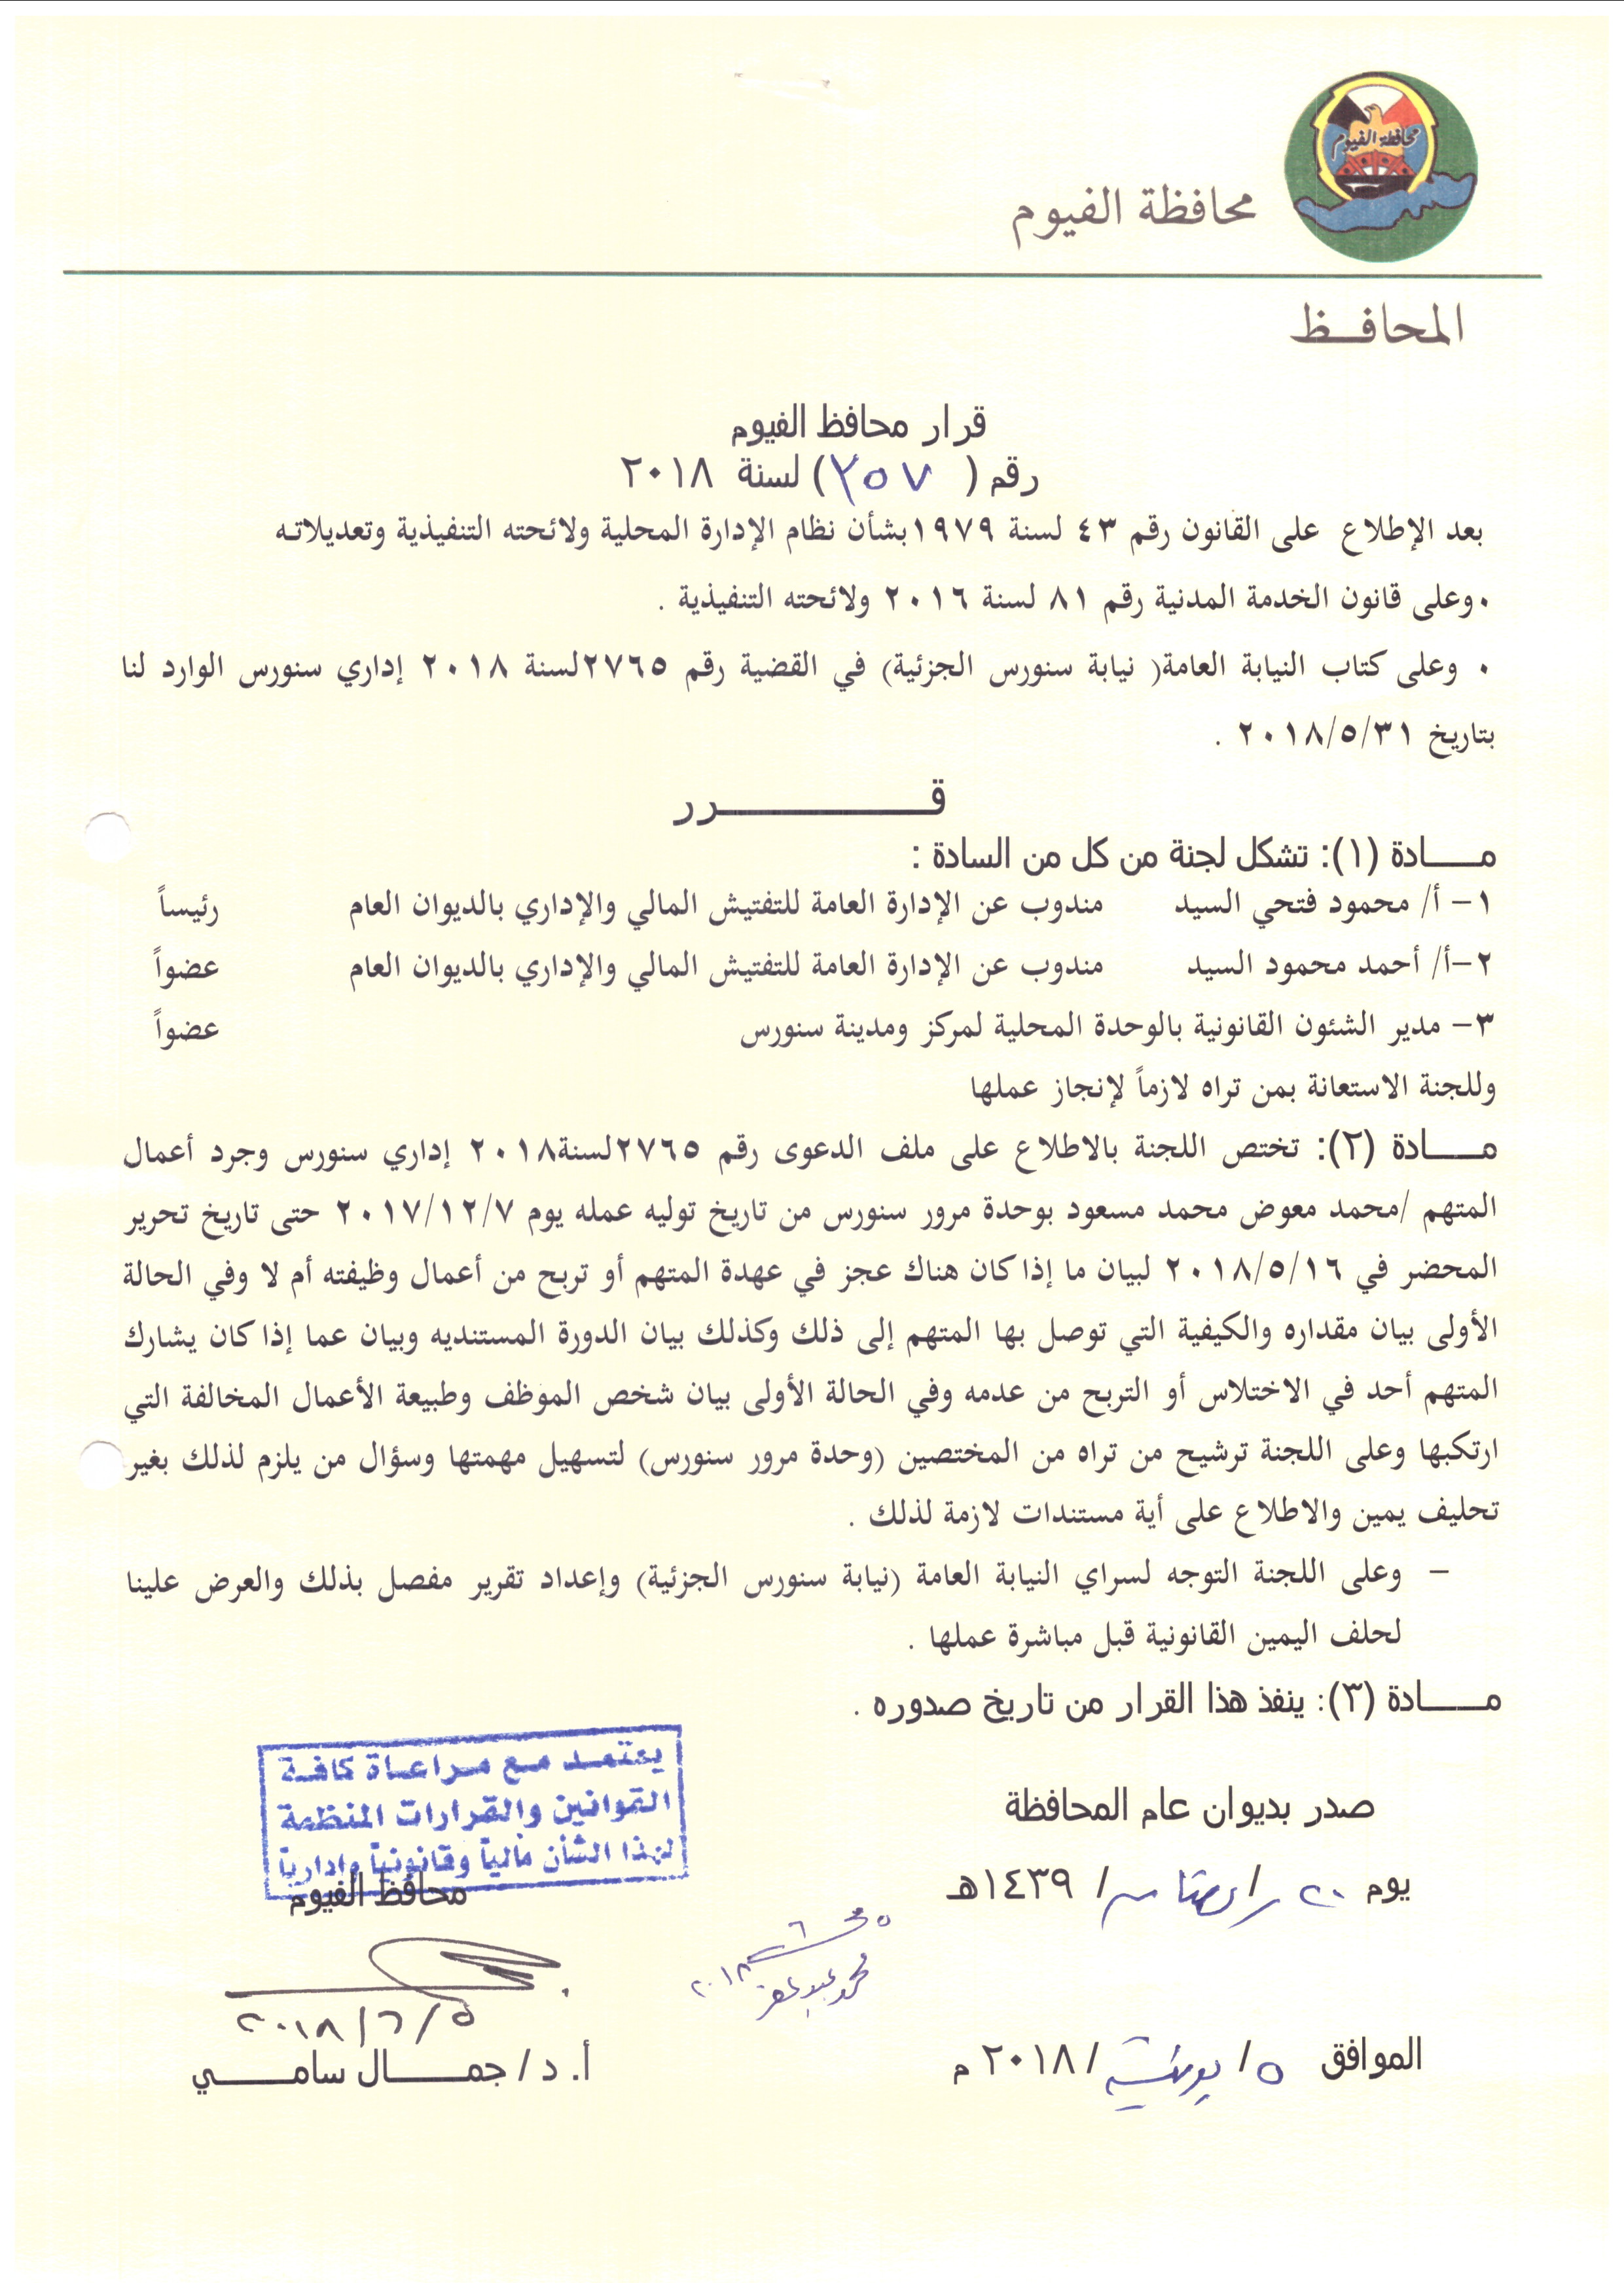 محافظة الفيوم
محافظة الفيوم
المحافــظ
قرار محافظ الفيوم
رقم ( ٢٥٧ ) لسنة ٢٠١٨
بعد الإطلاع على القانون رقم ٤٣ لسنة ١٩٧٩ بشأن نظام الإدارة المحلية ولائحته التنفيذية وتعديلاته
٠ وعلى قانون الخدمة المدنية رقم ٨١ لسنة ٢٠١٦ ولائحته التنفيذية .
٠ وعلى كتاب النيابة العامة( نيابة سنورس الجزئية) في القضية رقم ٢٧٦٥لسنة ٢٠١٨ إداري سنورس الوارد لنا
بتاريخ ٢٠١٨/٥/٣١ .
قـــــــــرر
مــــادة (١): تشكل لجنة من كل من السادة :
١- أ/ محمود فتحي السيد مندوب عن الإدارة العامة للتفتيش المالي والإداري بالديوان العام رئيساً
٢-أ/ أحمد محمود السيد مندوب عن الإدارة العامة للتفتيش المالي والإداري بالديوان العام عضواً
٣- مدير الشئون القانونية بالوحدة المحلية لمركز ومدينة سنورس عضواً
وللجنة الاستعانة بمن تراه لازماً لإنجاز عملها
مــــادة (٢): تختص اللجنة بالاطلاع على ملف الدعوى رقم ٢٧٦٥لسنة٢٠١٨ إداري سنورس وجرد أعمال
المتهم /محمد معوض محمد مسعود بوحدة مرور سنورس من تاريخ توليه عمله يوم ٢٠١٧/١٢/٧ حتى تاريخ تحرير
المحضر في ٢٠١٨/٥/١٦ لبيان ما إذا كان هناك عجز في عهدة المتهم أو تربح من أعمال وظيفته أم لا وفي الحالة
الأولى بيان مقداره والكيفية التي توصل بها المتهم إلى ذلك وكذلك بيان الدورة المستنديه وبيان عما إذا كان يشارك
المتهم أحد في الاختلاس أو التربح من عدمه وفي الحالة الأولى بيان شخص الموظف وطبيعة الأعمال المخالفة التي
ارتكبها وعلى اللجنة ترشيح من تراه من المختصين (وحدة مرور سنورس) لتسهيل مهمتها وسؤال من يلزم لذلك بغير
تحليف يمين والاطلاع على أية مستندات لازمة لذلك .
- وعلى اللجنة التوجه لسراي النيابة العامة (نيابة سنورس الجزئية) وإعداد تقرير مفصل بذلك والعرض علينا
لحلف اليمين القانونية قبل مباشرة عملها .
مــــادة (٣): ينفذ هذا القرار من تاريخ صدوره .
يعتمد مع مراعاة كافة
القوانين والقرارات المنظمة
لهذا الشأن مالياً وقانونياً وإدارياً
صدر بديوان عام المحافظة
محافظ الفيوم
يوم ٢٠ / رمضان / ١٤٣٩هـ
٢٠١٨/٦/٥
الموافق ٥ / يونية / ٢٠١٨ م
أ. د/ جمــــال سامــــي